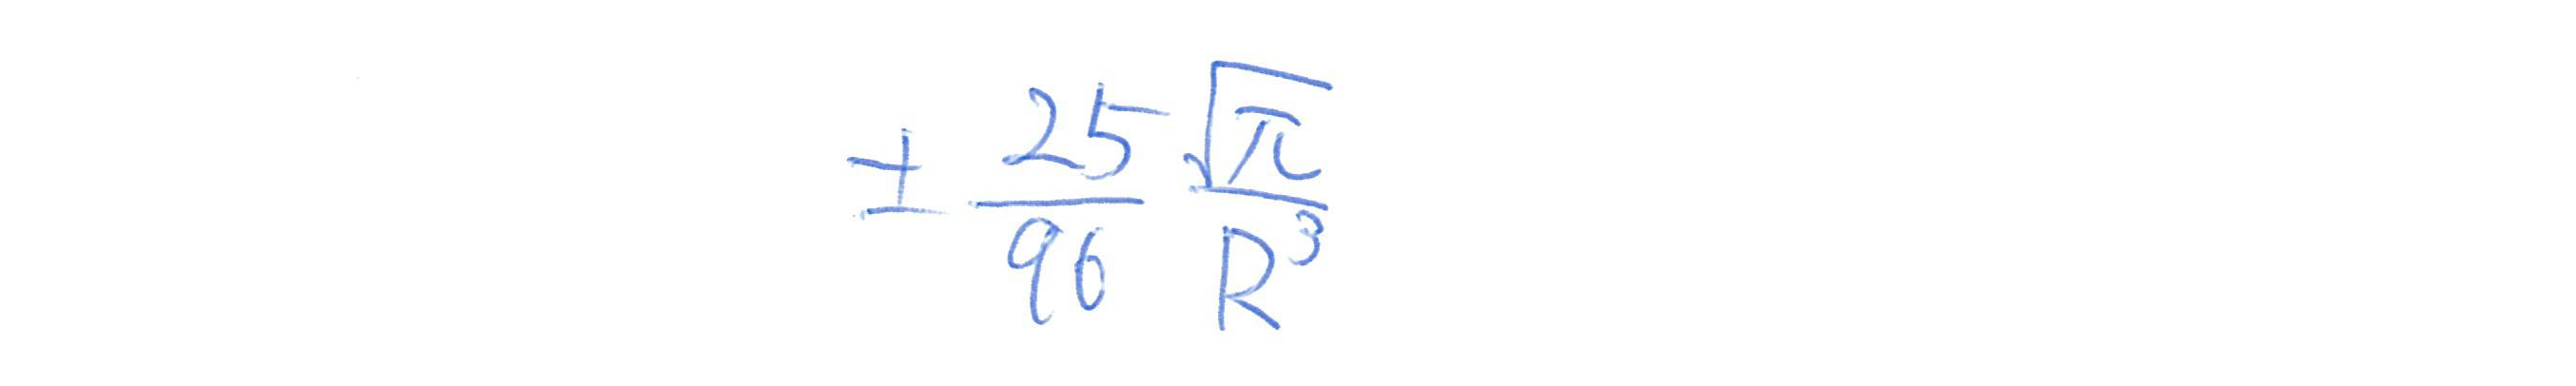 $\pm \frac{25}{96} \frac{\sqrt{\pi}}{R^3}$